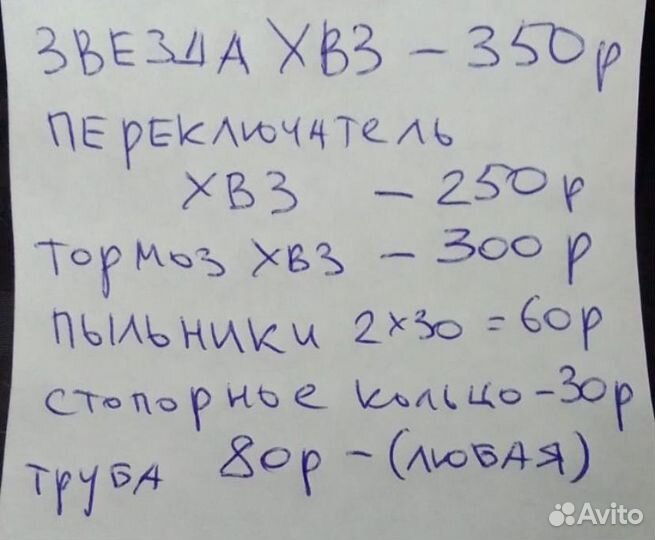 ЗВЕЗДА ХВЗ - 350р
ПЕРЕКЛЮЧАТЕЛЬ
ХВЗ - 250р
ТОРМОЗ ХВЗ - 300 р
ПЫЛЬНИКИ 2х30 = 60р
СТОПОРНОЕ КОЛЬЦО - 30р
ТРУБА 80р - (ЛЮБАЯ)
Avito